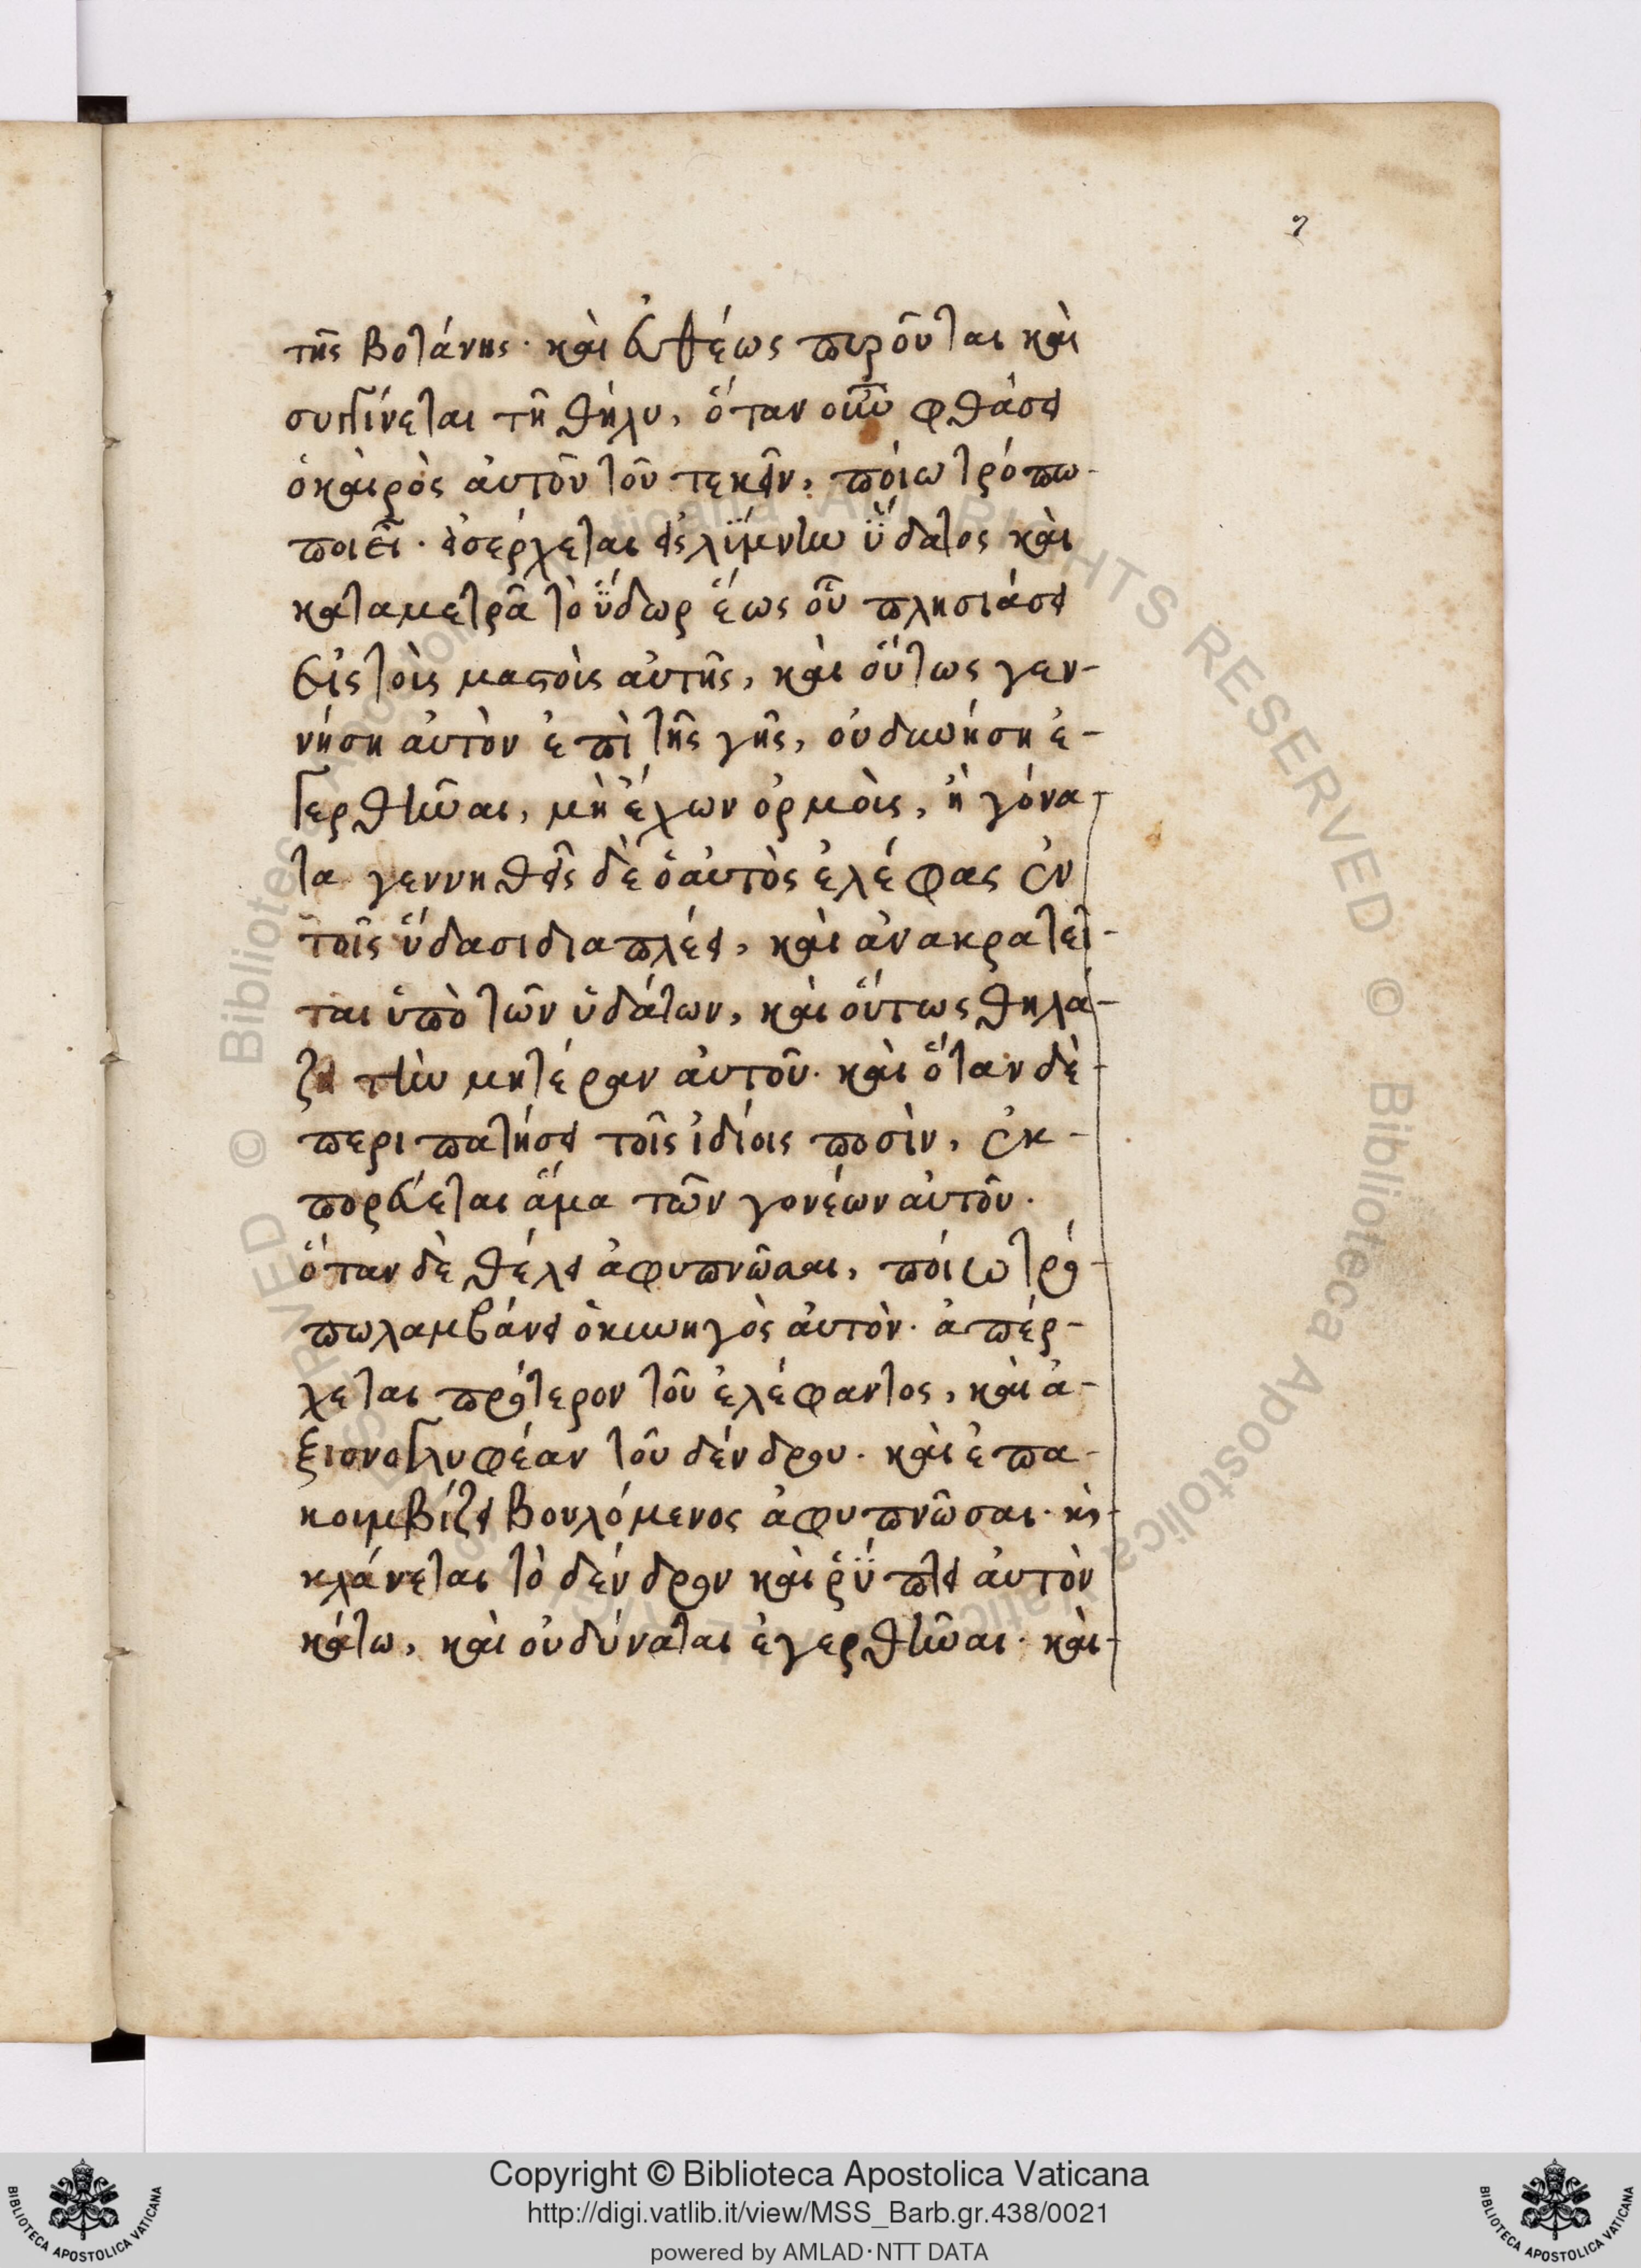 7
τῆς βοτάνης· καὶ εὐθέως πυροῦται καὶ
συγγίνεται τῆ θήλυ, ὅταν οὖν φθάσει
ὁ καιρὸς αὐτοῦ τοῦ τεκεῖν, ποίω τρόπω
ποιεῖ· εἰσέρχεται εἰς λίμνην ὕδατος καὶ
καταμετρᾶ τὸ ὕδωρ ἕως οὗ πλησιάσει
εἰς τοὶς μαστοὶς αὐτῆς, καὶ οὕτως γεν-
νήση αὐτὸν ἐπὶ τῆς γῆς, οὐ δυνήση ἐ-
γερθῆναι, μὴ ἔχων ὁρμοὶς, ἢ γόνα-
τα γεννηθεῖς δὲ ὁ αὐτὸς ἐλέφας ἐν
τοῖς ὕδασι διαπλέει, καὶ ἀνακρατεῖ-
ται ὑπὸ τῶν ὑδάτων, καὶ οὕτως θηλά-
ζει τὴν μητέραν αὐτοῦ· καὶ ὅταν δὲ
περιπατήσει τοῖς ἰδίοις ποσὶν, ἐκ-
πορεύεται ἅμα τῶν γονέων αὐτοῦ·
ὅταν δὲ θέλει ἀφυπνῶσαι, ποίω τρό-
πω λαμβάνει ὁ κυνηγὸς αὐτὸν· ἀπέρ-
χεται πρότερον τοῦ ἐλέφαντος, καὶ ἀ-
ξιονογλυφέαν τοῦ δένδρου· καὶ ἐπα-
κουμβίζει βουλόμενος ἀφυπνῶσαι· καὶ
κλάνεται τὸ δένδρον καὶ ῥύπτει αὐτὸν
κάτω, καὶ οὐ δύναται ἐγερθῆναι· καὶ
Copyright © Biblioteca Apostolica Vaticana
http://digi.vatlib.it/view/MSS_Barb.gr.438/0021
powered by AMLAD·NTT DATA
BIBLIOTECA APOSTOLICA VATICANA
BIBLIOTECA APOSTOLICA VATICANA